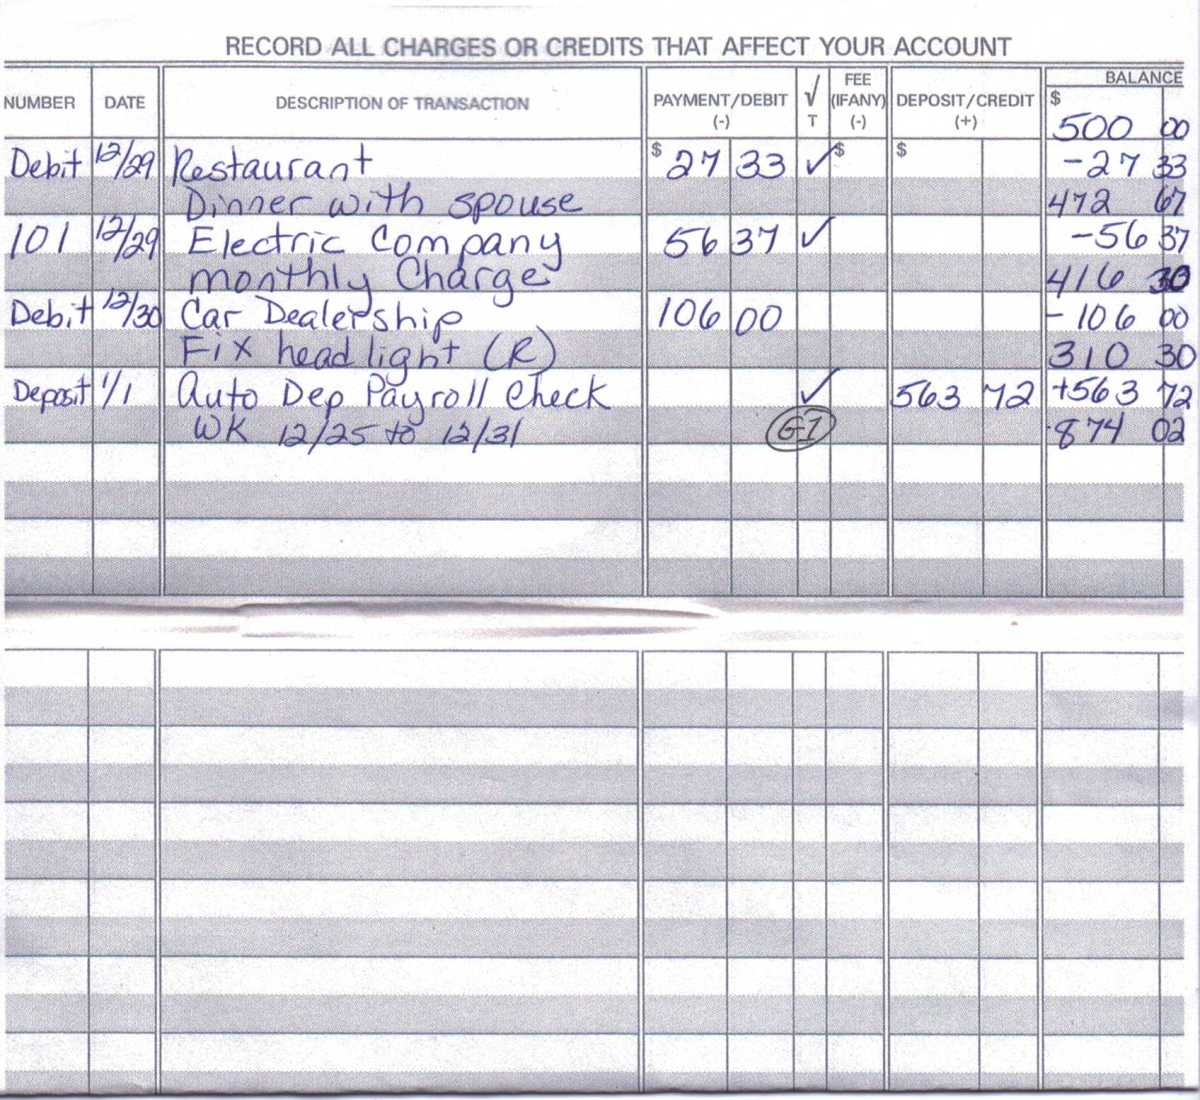 RECORD ALL CHARGES OR CREDITS THAT AFFECT YOUR ACCOUNT
NUMBER DATE DESCRIPTION OF TRANSACTION PAYMENT/DEBIT (-) √ T FEE (IFANY) (-) DEPOSIT/CREDIT (+) BALANCE
$ 500 00
Debit 12/29 Restaurant $ 27 33 ✓ $ $ -27 33
Dinner with spouse 472 67
101 12/29 Electric Company 56 37 ✓ -56 37
monthly Charge 416 30
Debit 12/30 Car Dealership 106 00 - 106 00
Fix head light (R) 310 30
Deposit 1/1 Auto Dep Payroll Check ✓ 563 72 +563 72
WK 12/25 to 12/31 874 02